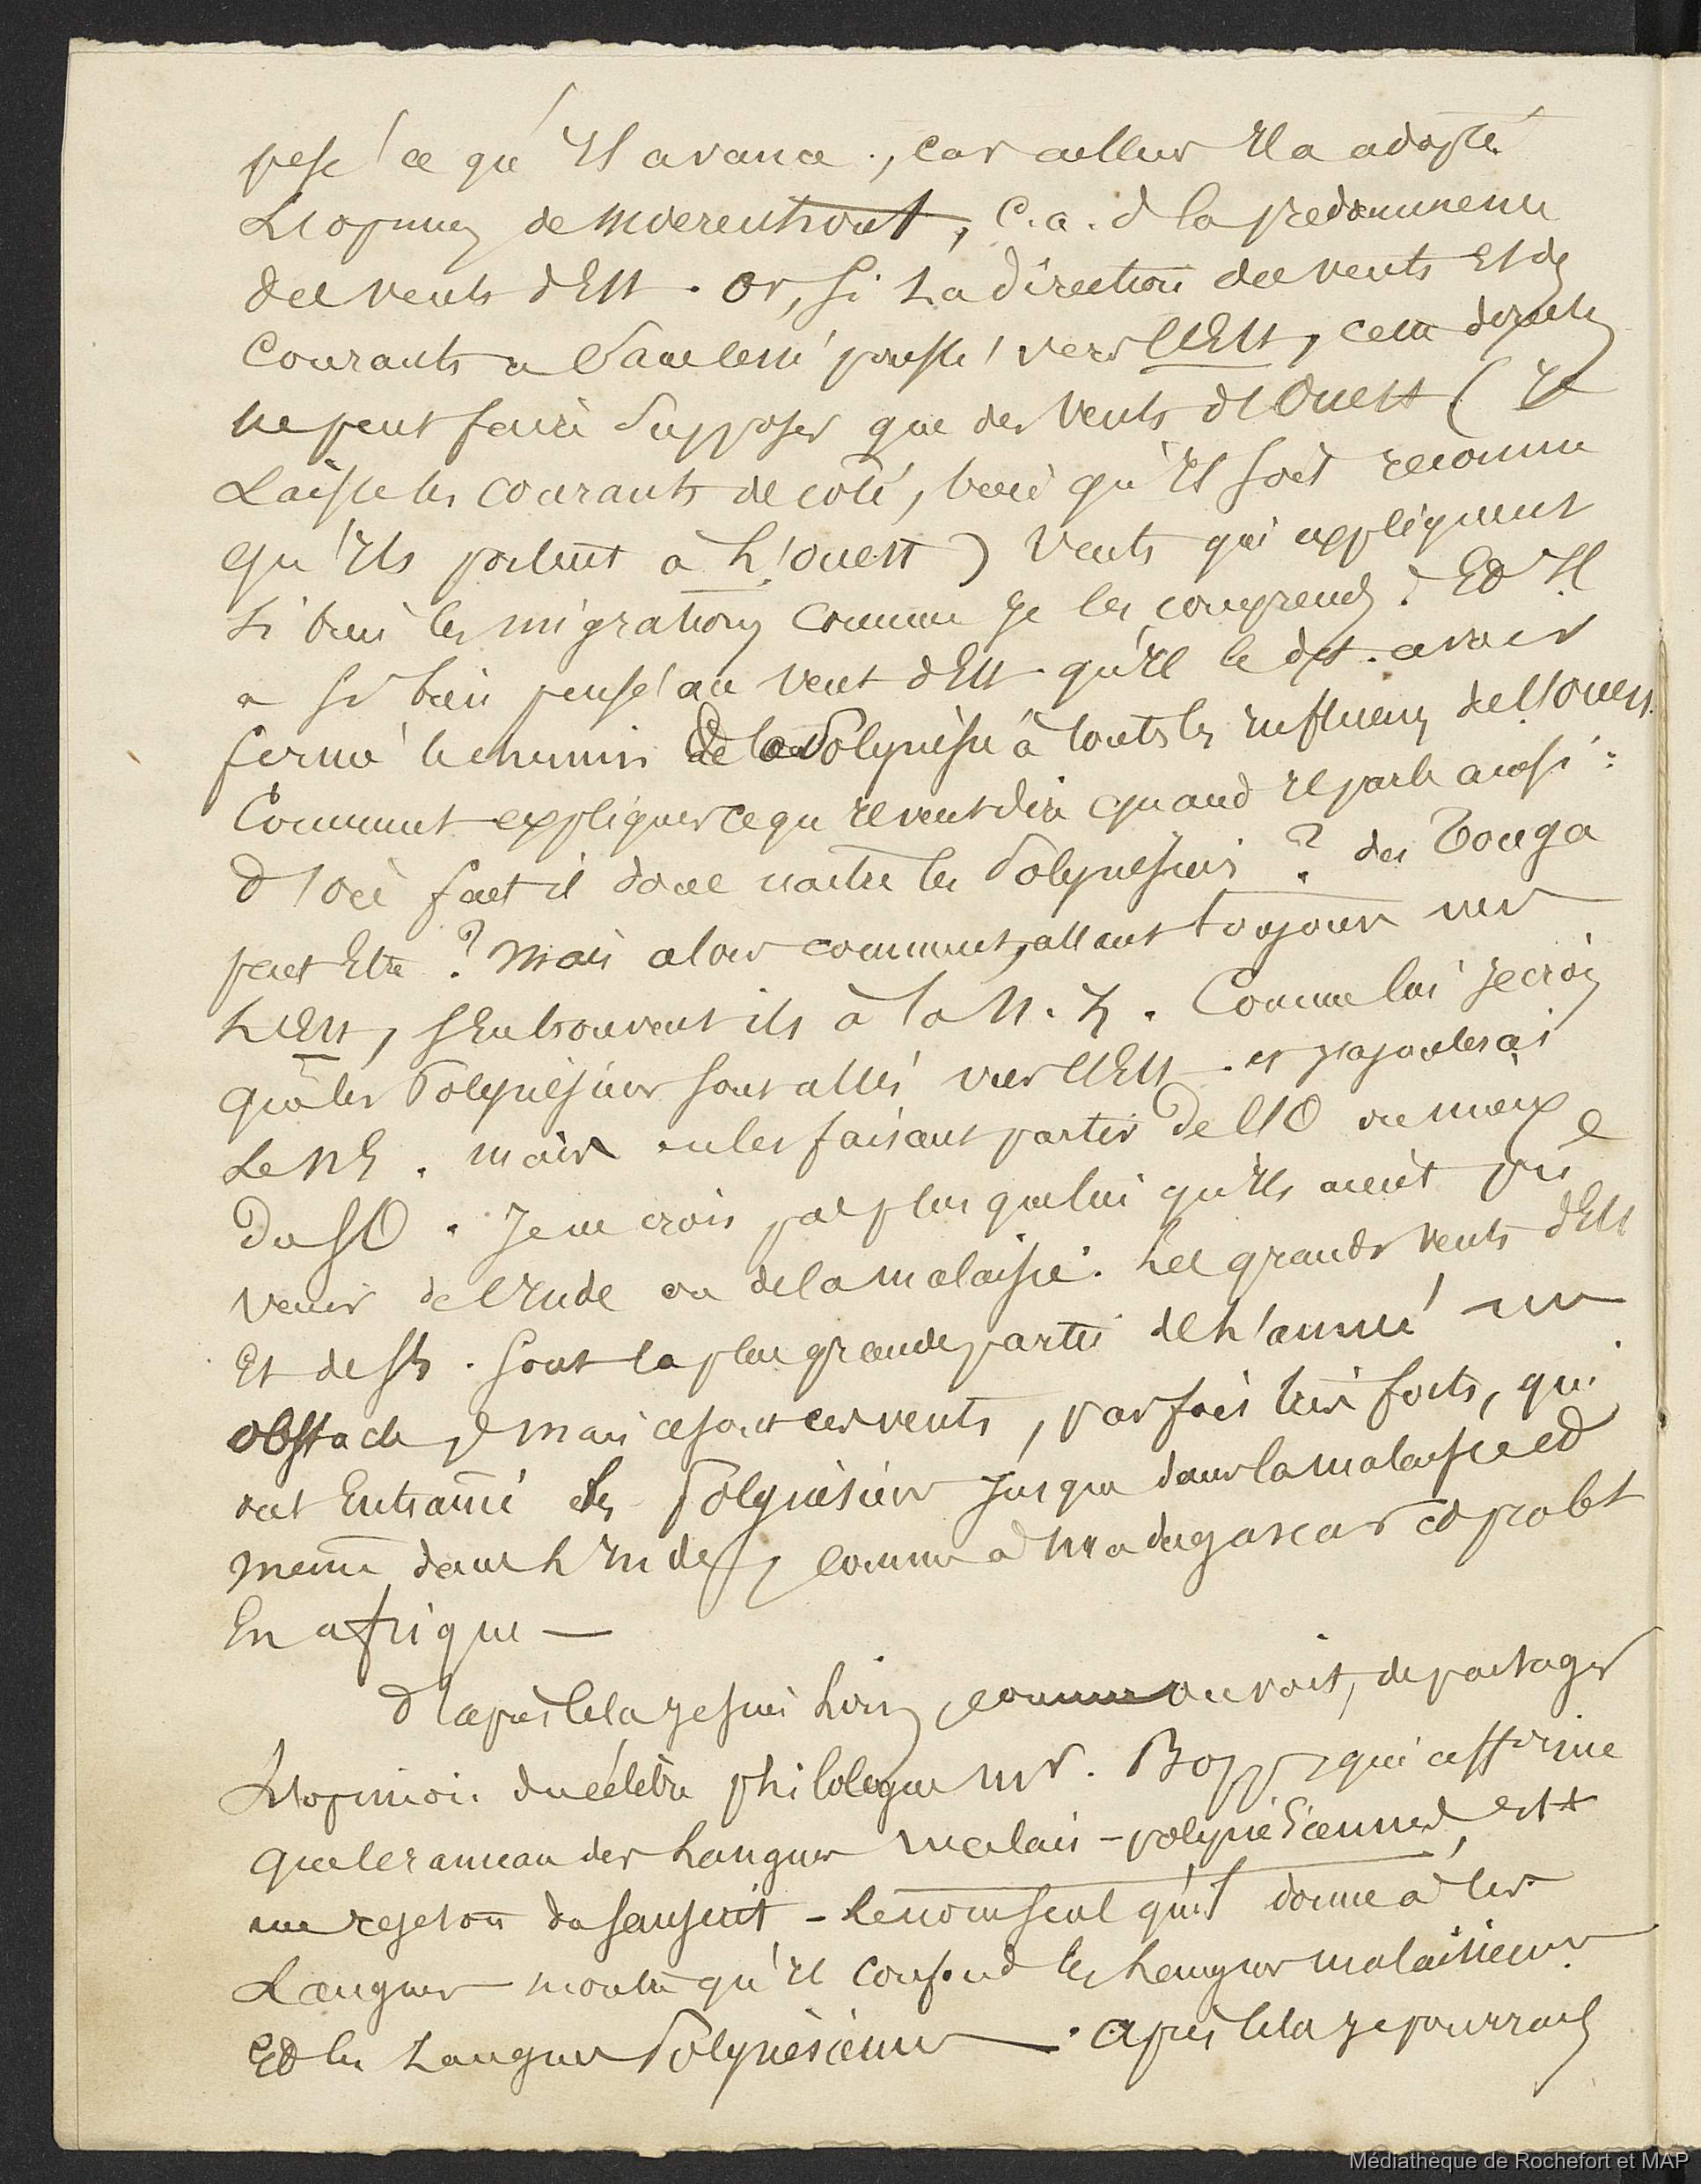 pesé ce qu'il avance, car ailleurs il a adopté
L'opinion de Moerenhout, c.a.d la prédominence
des vents d'Est. Or, si la direction des vents et des
Courants a sans cesse poussé vers l'Est, cette dispute
ne peut faire supposer que des vents d'Ouest (je
Laisse les courants de coté, bien qu'il soit reconnu
qu'ils portent à l'ouest) vents qui expliquent
si bien les migrations comme je les comprends. Et il
a si bien pensé au vent d'Est qu'il le dit avoir
fermé le chemin de la Polynésie à toutes les influences de l'ouest.
Comment expliquer ce qu'il veut dire quand il parle ainsi :
D'où fait il donc naitre les Polynésiens ? des Tonga
peut Etre ? mais alors comment, allant toujours vers
L'Est, se trouvent ils à la N. Z. Comme lui je crois
que les Polynésiens sont allés vers l'Est et j'ajouterai
Le NE. mais en les faisant partir de l'O ou mieux
Du SO. Je ne crois pas plus que lui qu'ils aient pu
venir de l'Inde ou de la malaisie. Les grands vents d'Est
Et de SE. sont la plus grande partie de l'année un
obstacle, mais ce sont ces vents, parfois très forts, qui
ont Entrainé les Polynésiens jusque dans la malaisie et
meme dans l'Inde, comme à Madagascar et probt
En afrique —
D'après cela je suis loin, comme on voit, de partager
L'opinion du célèbre philologue Mr. Bopp, qui affirme
que le rameau des Langues malais-polynésiennes est
un rejeton du sanscrit - Le nom seul qu'il donne à les
Langues montre qu'il confond les Langues malaisiennes
Et les Langues Polynésiennes —. après cela je pourrais
Médiathèque de Rochefort et MAP